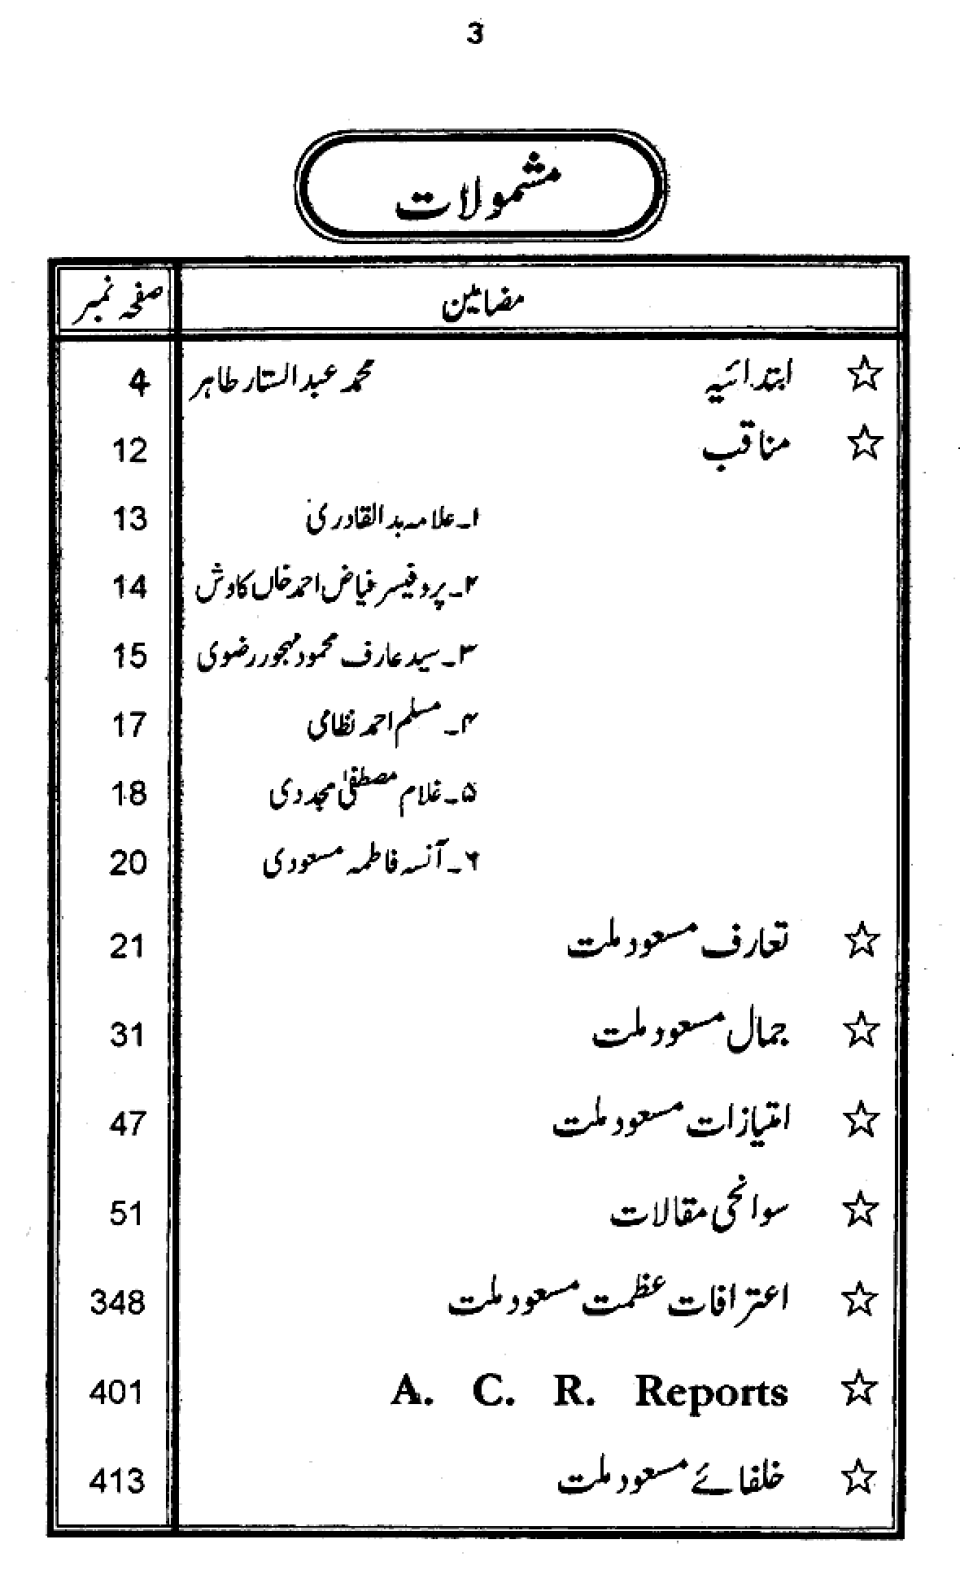 3
مشمولات
مضامین صفحہ نمبر
☆ ابتدائیہ محمد عبدالستار طاہر 4
☆ مناقب 12
۱۔ علامہ بدالقادری 13
۲۔ پروفیسر فیاض احمد خاں کاوش 14
۳۔ سید عارف محمود مہجور رضوی 15
۴۔ مسلم احمد نظامی 17
۵۔ غلام مصطفیٰ مجددی 18
۶۔ آنسہ فاطمہ مسعودی 20
☆ تعارف مسعود ملت 21
☆ جمال مسعود ملت 31
☆ امتیازات مسعود ملت 47
☆ سوانحی مقالات 51
☆ اعترافات عظمت مسعود ملت 348
☆ A. C. R. Reports 401
☆ خلفائے مسعود ملت 413